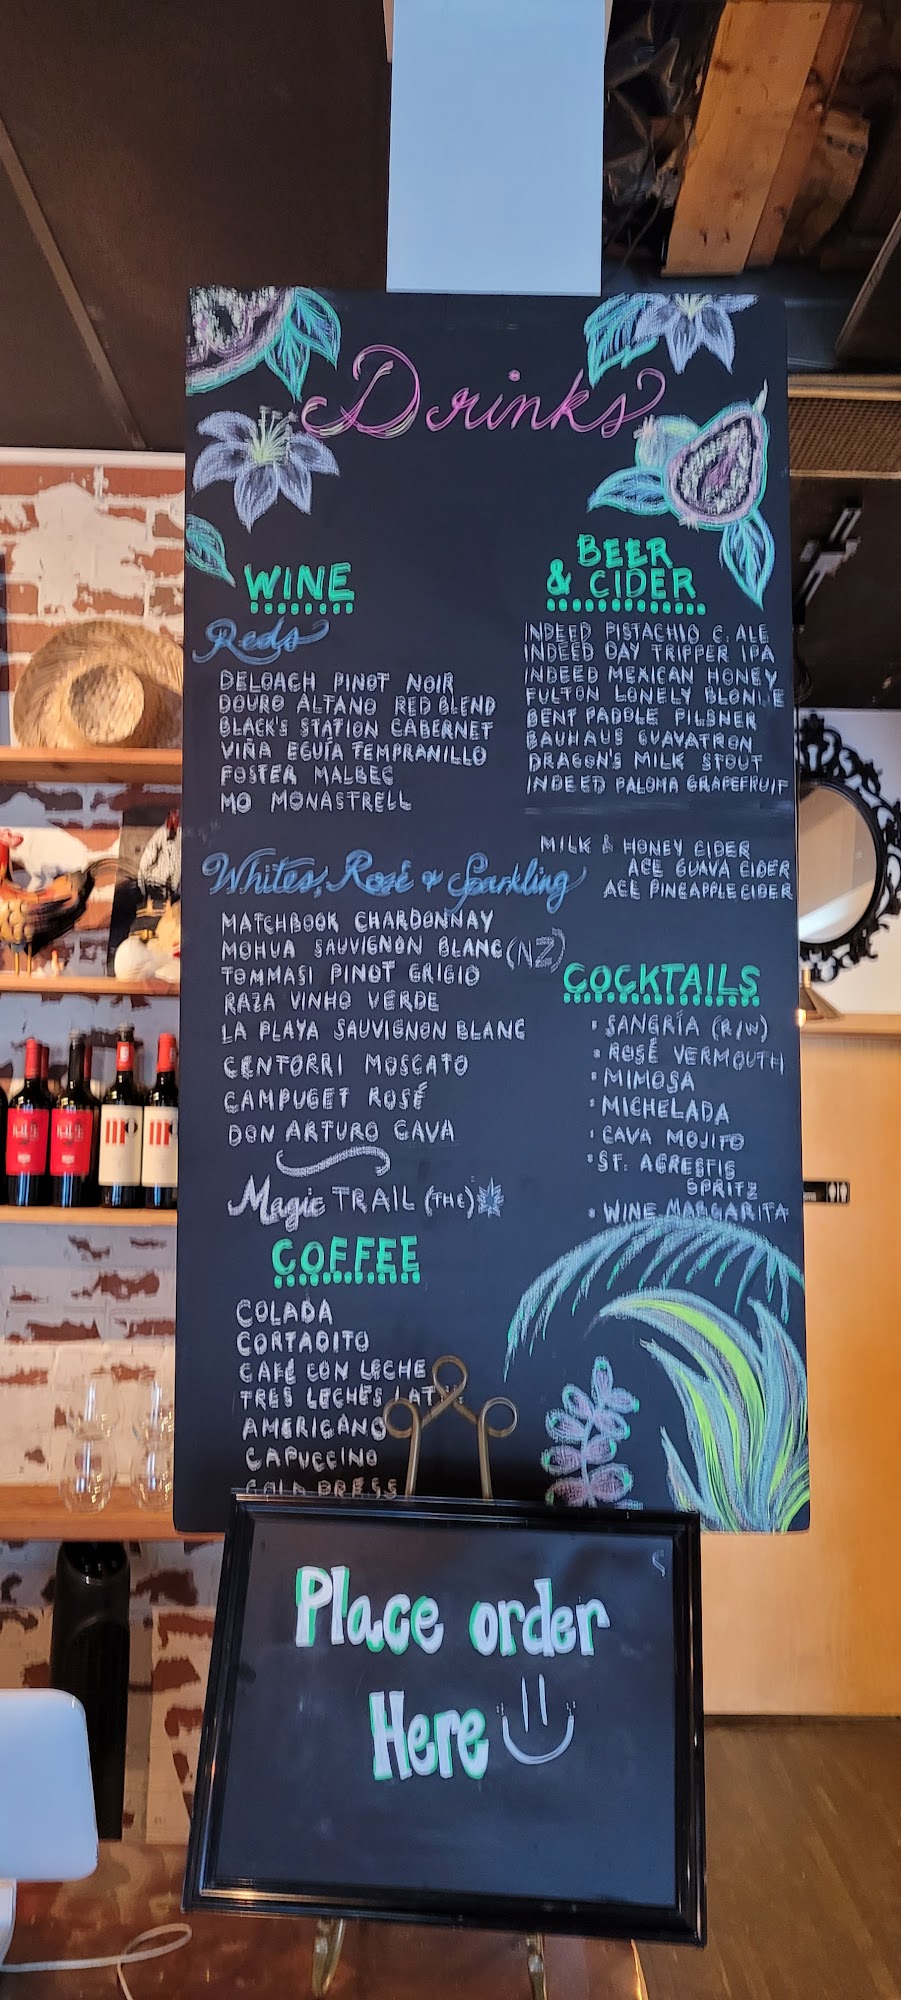 Drinks
WINE
Reds
DELOACH PINOT NOIR
DOURO ALTANO RED BLEND
BLACK'S STATION CABERNET
VIÑA EGUÍA TEMPRANILLO
FOSTER MALBEC
MO MONASTRELL
Whites, Rosé & Sparkling
MATCHBOOK CHARDONNAY
MOHUA SAUVIGNON BLANC (NZ)
TOMMASI PINOT GRIGIO
RAZA VINHO VERDE
LA PLAYA SAUVIGNON BLANC
CENTORRI MOSCATO
CAMPUGET ROSÉ
DON ARTURO CAVA
Magic TRAIL (THC)
COFFEE
COLADA
CORTADITO
CAFÉ CON LECHE
TRES LECHES
AMERICANO
CAPUCCINO
PRESS
BEER
& CIDER
INDEED PISTACHIO C. ALE
INDEED DAY TRIPPER IPA
INDEED MEXICAN HONEY
FULTON LONELY BLONDE
BENT PADDLE PILSNER
BAUHAUS GUAVATRON
DRAGON'S MILK STOUT
INDEED PALOMA GRAPEFRUIT
MILK & HONEY CIDER
ACE GUAVA CIDER
ACE PINEAPPLE CIDER
COCKTAILS
• SANGRÍA (R/W)
• ROSÉ VERMOUTH
• MIMOSA
• MICHELADA
• CAVA MOJITO
• ST. AGRESTIS
SPRITZ
• WINE MARGARITA
Place order
Here